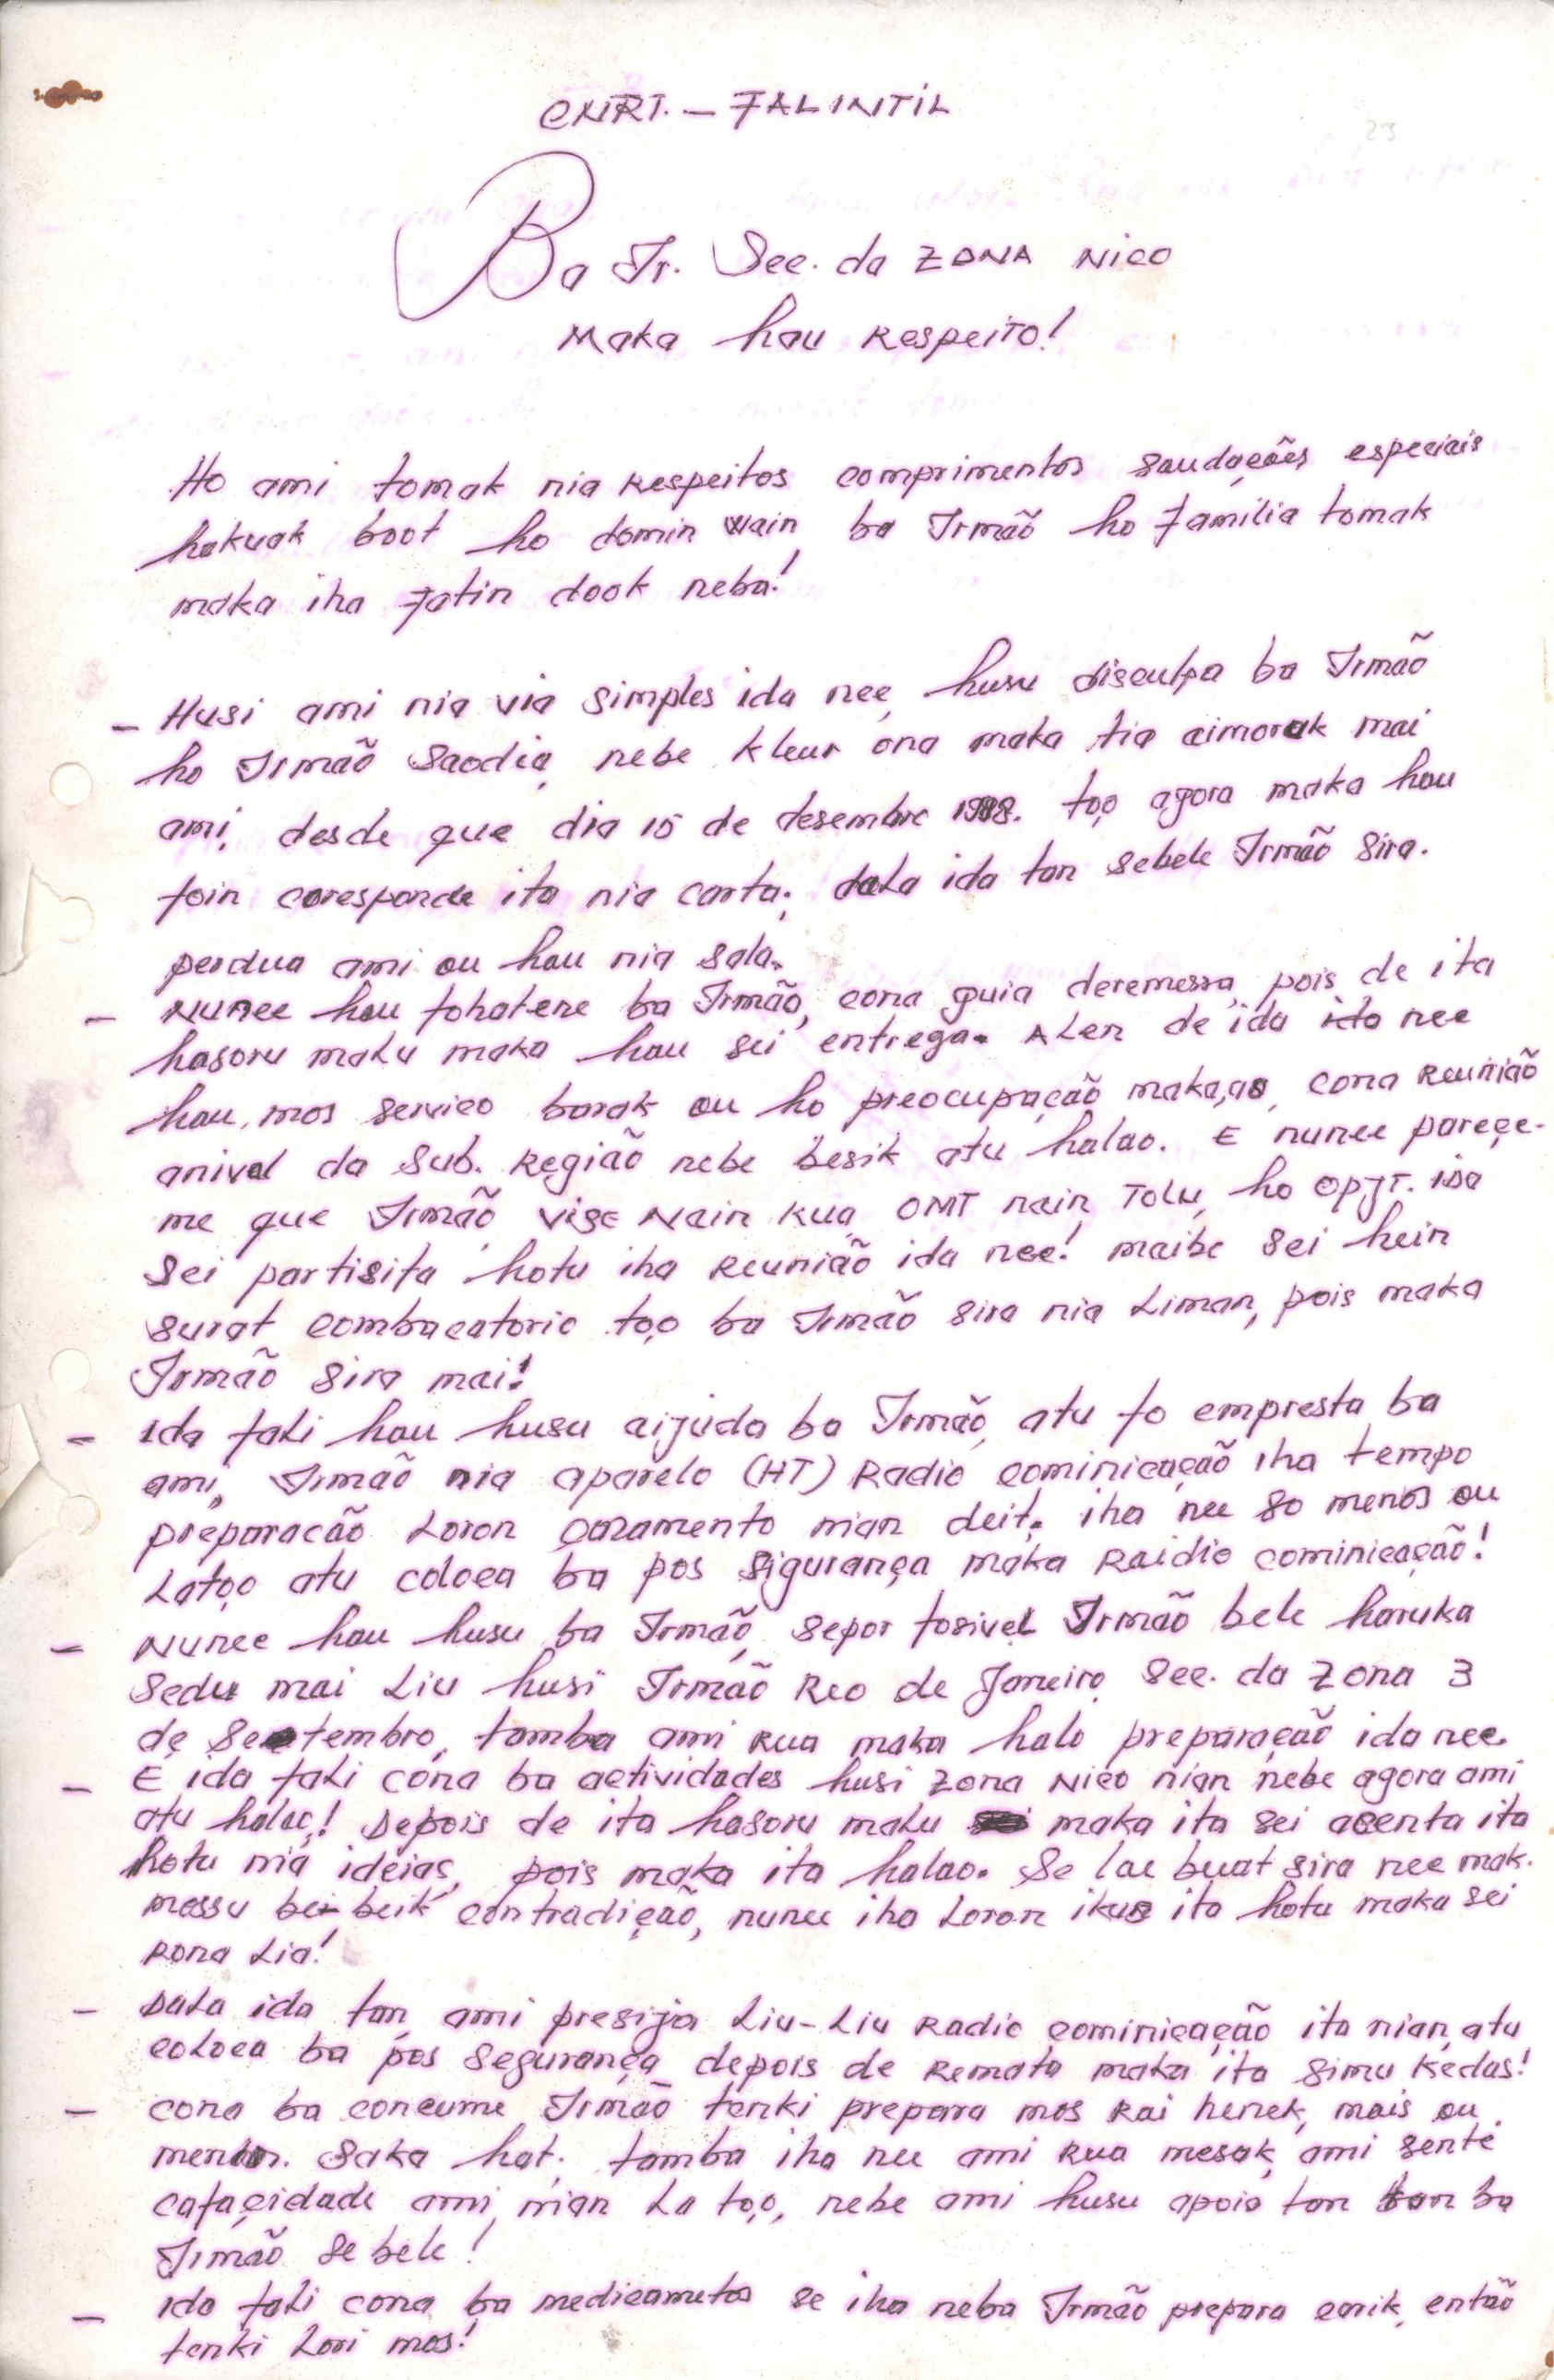 CNRT. - FALINTIL
23
Ba Ir. Sec. da ZONA NICO
Maka hau Respeito!
Ho ami tomak nia Respeitos comprimentos saudações especiais
hakuak boot ho domin wain ba Irmão ho Familia tomak
maka iha Fatin dook neba!
- Husi ami nia via simples ida nee, husu disculpa ba Irmão
ho Irmão Saodia, nebe kleur ona maka tia aimoruk mai
ami, desde que dia 15 de desembro 1998. too agora maka hau
foin coresponde ita nia carta; dala ida tan sebele Irmão Sira.
perdua ami ou hau nia sala.
- Nunee hau fohatene ba Irmão, cona guia deremessa, pois de ita
hasoru malu maka hau sei entrega. Alen de ida ita nee
hau, mos servico barak ou ho preocupação makaas, cona Reunião
anivel da Sub. Região nebe besik atu halao. E nunee pareçe-
me que Irmão, vise Nain Rua, OMT nain Tolu, ho OPJT. ida
Sei partisipa hotu iha Reunião ida nee! maibe sei hein
surat combacatorio too ba Irmão sira nia Liman, pois maka
Irmão Sira mai!
- Ida fali hau husu aijuda ba Irmão, atu fo empresta ba
ami, Irmão nia aparelo (HT) Radio cominicação iha tempo
preparacão Loron çaramento nian deit. iha nee so menos ou
Latoo atu coloca ba pos sigurança maka Raidio cominicação!
- Nunee hau husu ba Irmão, sepor posivel Irmão bele haruka
Sedu mai Liu husi Irmão Rio de Janeiro Sec. da Zona 3
de Setembro, tamba ami Rua maka halo preparação ida nee.
- E ida fali cona ba actividades husi Zona Nico nian nebe agora ami
atu halao! Depois de ita hasoru malu maka ita sei acenta ita
hotu nia idéias, pois maka ita halao. Se lae buat sira nee mak.
mossu bei-beik contradição, nunee iha Loron ikus ita hotu maka sei
Rona Lia!
- Dala ida tan, ami presija Liu-Liu Radio cominicação ita nian, atu
coloca ba pos segurança, depois de Remata maka ita simu Kedas!
- cona ba concume, Irmão tenki prepara mos Rai henek, mais ou
menos. Saka hat; tamba iha nee ami Rua mesak, ami sente
capaçidade ami, nian La too, nebe ami husu apoio tan ba
Irmão se bele!
- Ida fali cona ba medicametos se iha neba Irmão prepara carik, então
tenki Lori mos!